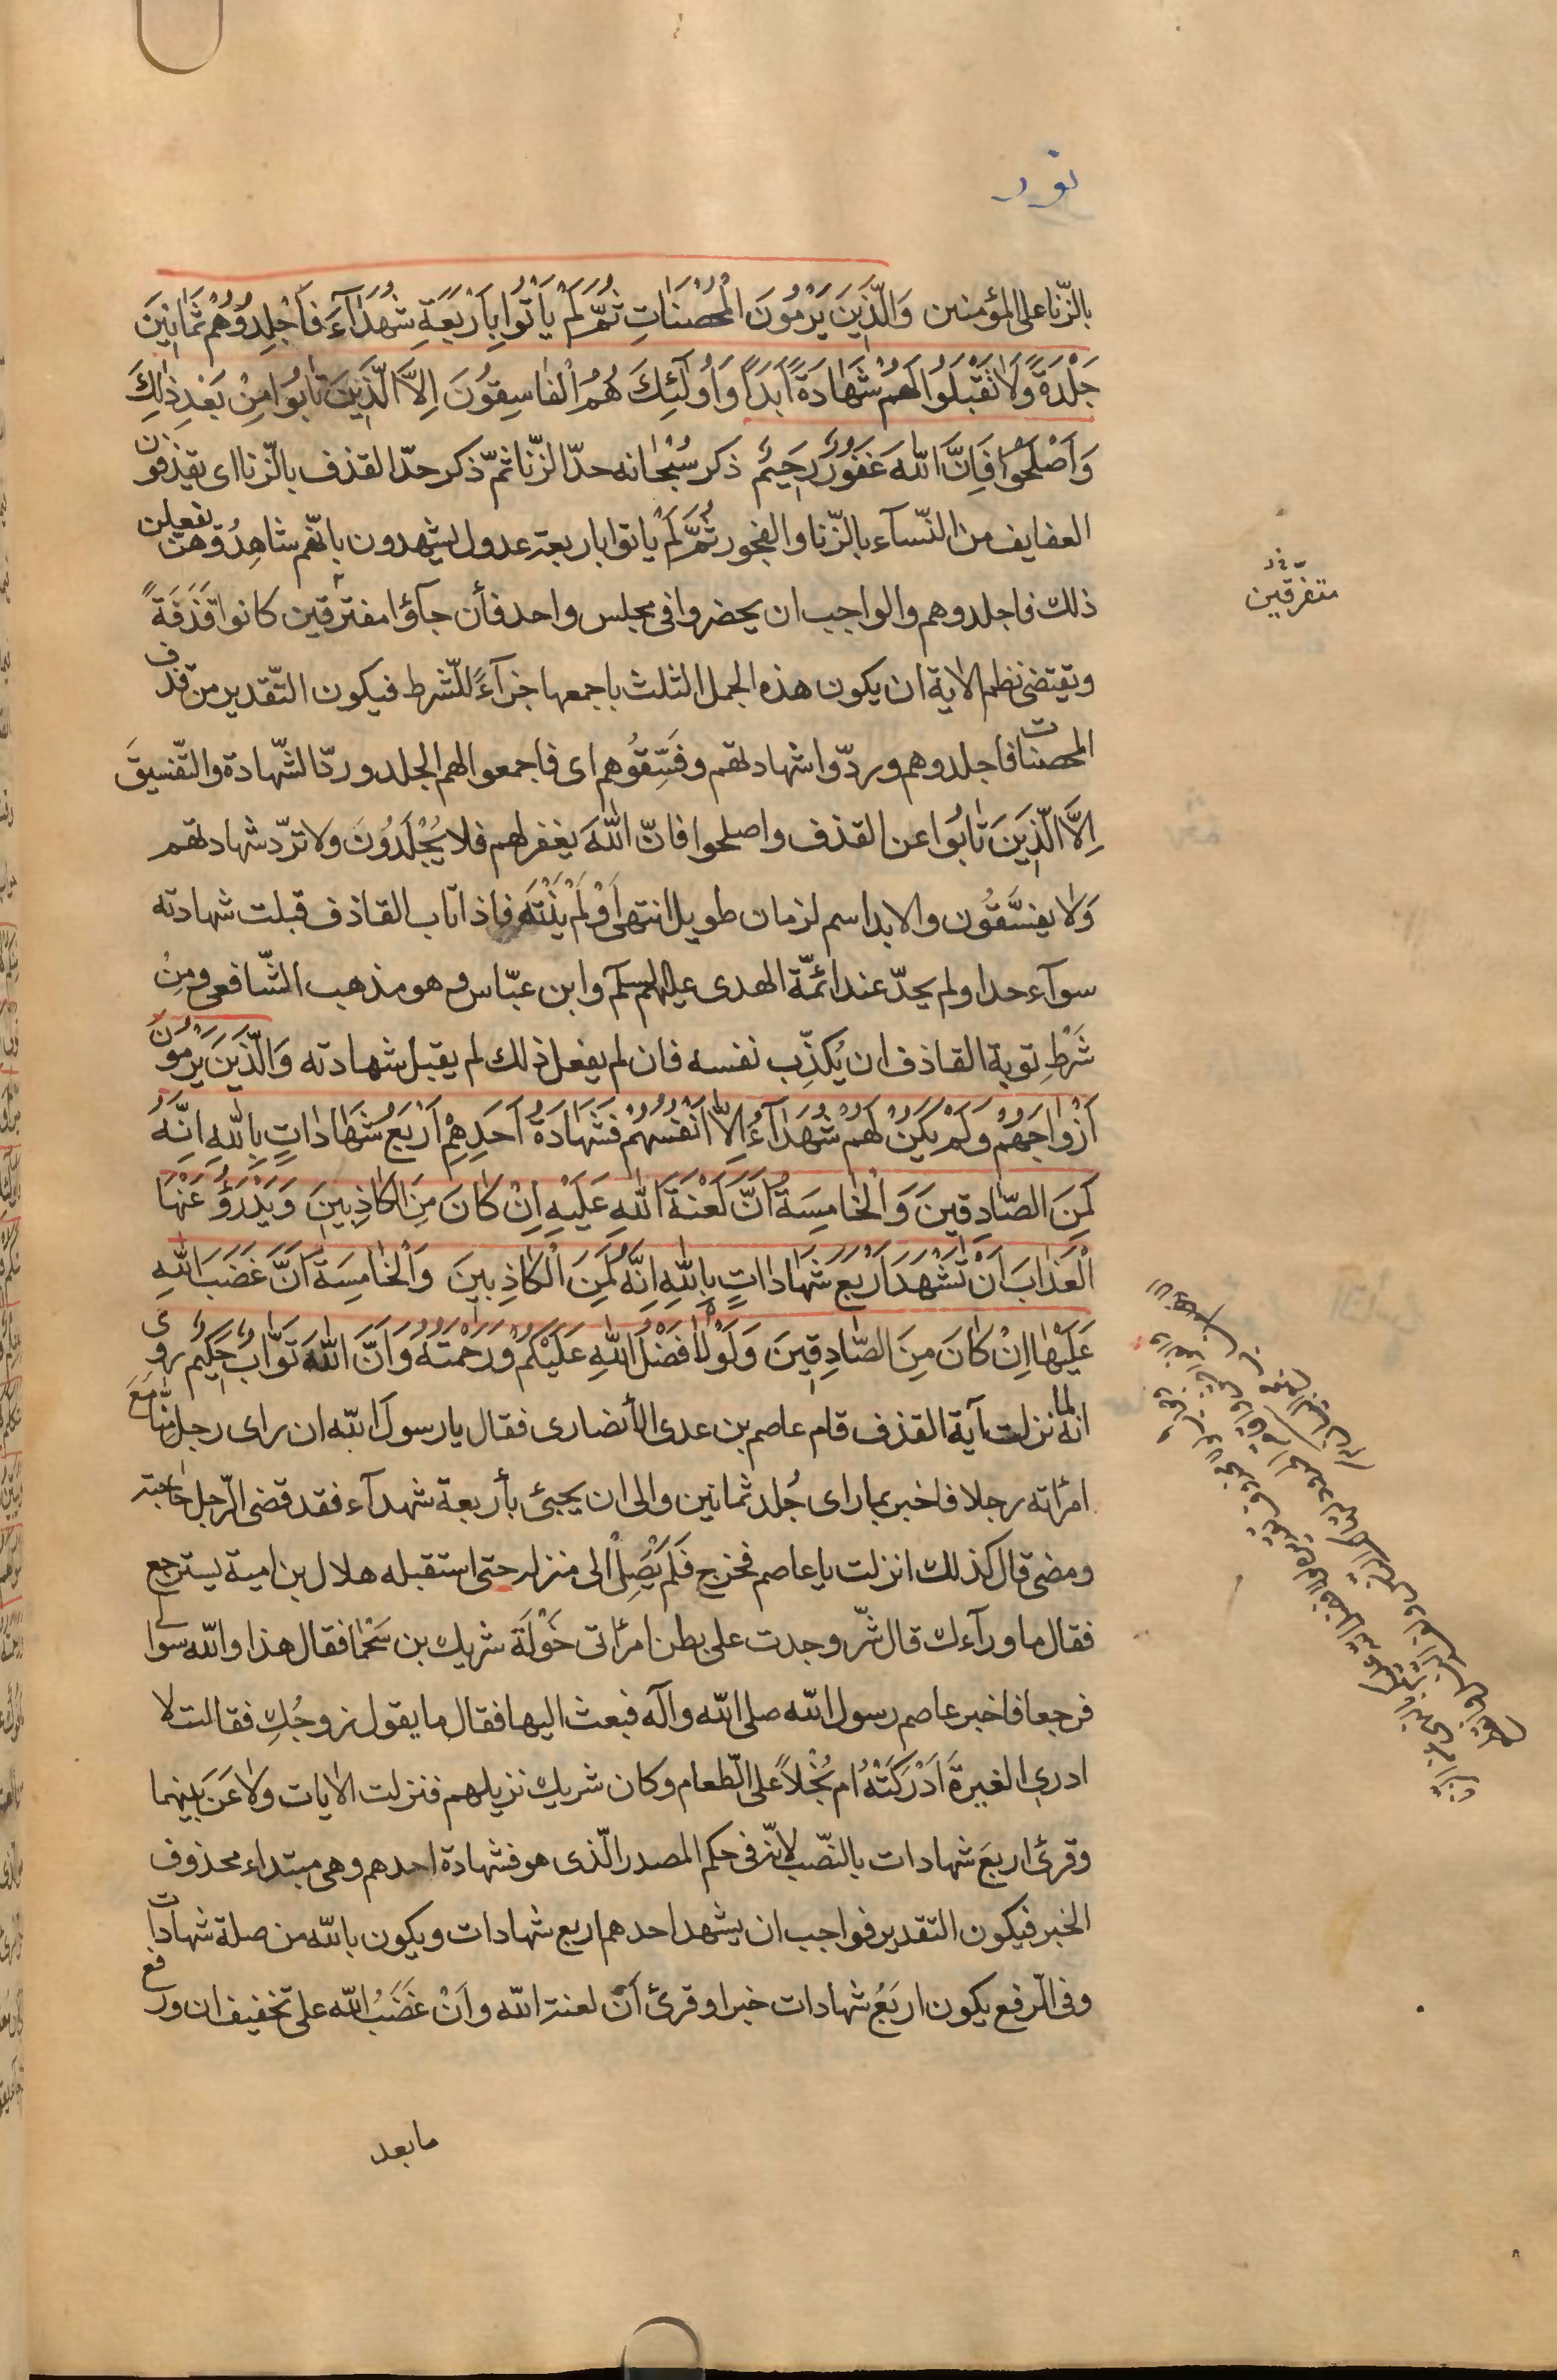 نور
بالزّنا على المؤمنين وَالَّذينَ يَرْمُونَ الْمُحْصَنٰاتِ ثُمَّ لَمْ يَأْتُوا بِأَرْبَعَةِ شُهَدٰآءَ فَاجْلِدُوهُمْ ثَمٰانينَ
جَلْدَةً وَلٰا تَقْبَلُوا لَهُمْ شَهٰادَةً اَبَدًا وَاُولٰٓئِكَ هُمُ الْفٰاسِقُونَ اِلَّا الَّذينَ تٰابُوا مِنْ بَعْدِ ذٰلِكَ
وَاَصْلَحُوا فَاِنَّ اللّٰهَ غَفُورٌ رَحيمٌ ذكر سُبْحٰانه حدّ الزّنا ثمّ ذكر حدّ القذف بالزّنا اى يقذفون
العفايف من النّسآء بالزّنا والفجور ثُمَّ لَمْ ياتوا باربعة عدول يشهدون بانّهم شاهِدُوهنّ يفعلن
ذلك فاجلدوهم والواجب ان يحضروا فى مجلس واحد فأن جآؤا مفترقين كانوا قَذَفَةً
وتقتضى نظم الاية ان يكون هذه الجمل الثلث باجمعها جزآءً للشّرط فيكون التّقدير من قذف
المحصنات فاجلدوهم وردّوا شهادتهم وفَسِّقُوهم اى فاجمعوا لهم الجلد وردّ الشّهادة والتّفسيقَ
اِلَّا الَّذينَ تٰابُوا عن القذف واصلحوا فانّ اللّٰهَ يغفر لهم فلا يُجْلَدُونَ ولا تردّ شهادتهم
وَلٰا يفسَّقُون والابد اسم لزمان طويل انتهى اَوْ لَمْ يَنْتَهِ فاذا تاب القاذف قبلت شهادته
سوآء حدا ولم يحدّ عند ائمّة الهدى عليهم السلم وابن عبّاس وهو مذهب الشّافعى ومِنْ
شَرْطِ توبة القاذف ان يُكذِّب نفسه فان لم يفعل ذلك لم يقبل شهادته وَالَّذينَ يَرْمُونَ
اَزْوٰاجَهُمْ وَلَمْ يَكُنْ لَهُمْ شُهَدٰآءُ اِلّٰا اَنْفُسُهُمْ فَشَهٰادَةُ اَحَدِهِمْ اَرْبَعُ شَهٰادٰاتٍ بِاللّٰهِ اِنَّهُ
لَمِنَ الصّٰادِقينَ وَالْخٰامِسَةُ اَنَّ لَعْنَةَ اللّٰهِ عَلَيْهِ اِنْ كٰانَ مِنَ الْكٰاذِبينَ وَيَدْرَؤُ عَنْهَا
الْعَذٰابَ اَنْ تَشْهَدَ اَرْبَعَ شَهٰادٰاتٍ بِاللّٰهِ اِنَّهُ لَمِنَ الْكٰاذِبينَ وَالْخٰامِسَةَ اَنَّ غَضَبَ اللّٰهِ
عَلَيْهٰا اِنْ كٰانَ مِنَ الصّٰادِقينَ وَلَوْلٰا فَضْلُ اللّٰهِ عَلَيْكُمْ وَرَحْمَتُهُ وَاَنَّ اللّٰهَ تَوّٰابٌ حَكيمٌ روى
انّه لما نزلت آية القذف قام عاصم بن عدى الأنصارى فقال يا رسول اللّه ان راى رجل منّا مَعَ
امرأته رجلا فاخبر بما راى جُلد ثمانين والى ان يجيئ بأربعة شهدآء فقد قضى الرّجل حاجته
ومضى قال كذلك انزلت يا عاصم فخرج فَلَمْ يَصِلْ الى منزله حتى استقبله هلال بن امية يسترجع
فقال ما ورآءك قال شرّ وجدت على بطن امرأتى خَوْلَةَ شريك بن سَحْمٰا فقال هذا واللّه سؤالى
فرجعا فاخبر عاصم رسول اللّه صلى اللّه وآله فبعث اليها فقال ما يقول زوجُكِ فقالت لا
ادرى الغيرةَ اَدْرَكَتْهُ ام بُخْلاً على الطّعام وكان شريك نزيلهم فنزلت الايات ولاعَنَ بينهما
وقرئ اربعَ شهادات بالنّصب لانّه فى حكم المصدر الّذى هو فشهادة احدهم وهى مبتداء محذوف
الخبر فيكون التقدير فواجب ان يشهد احدهم اربع شهادات ويكون باللّه من صلة شهادات
وفى الرّفع يكون اربَعُ شهادات خبرا وقرئ اَنْ لعنة اللّه واَنْ غَضَبُ اللّه على تخفيف ان ورفع
متفرّقين
مابعد